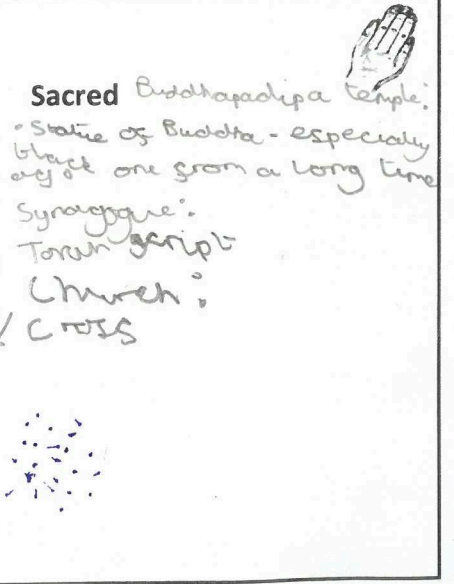 Sacred Buddhapadipa temple:
• Statue of Buddha - especially
black one from a long time
ago.
Synagogue:
Torah script
Church:
Cross